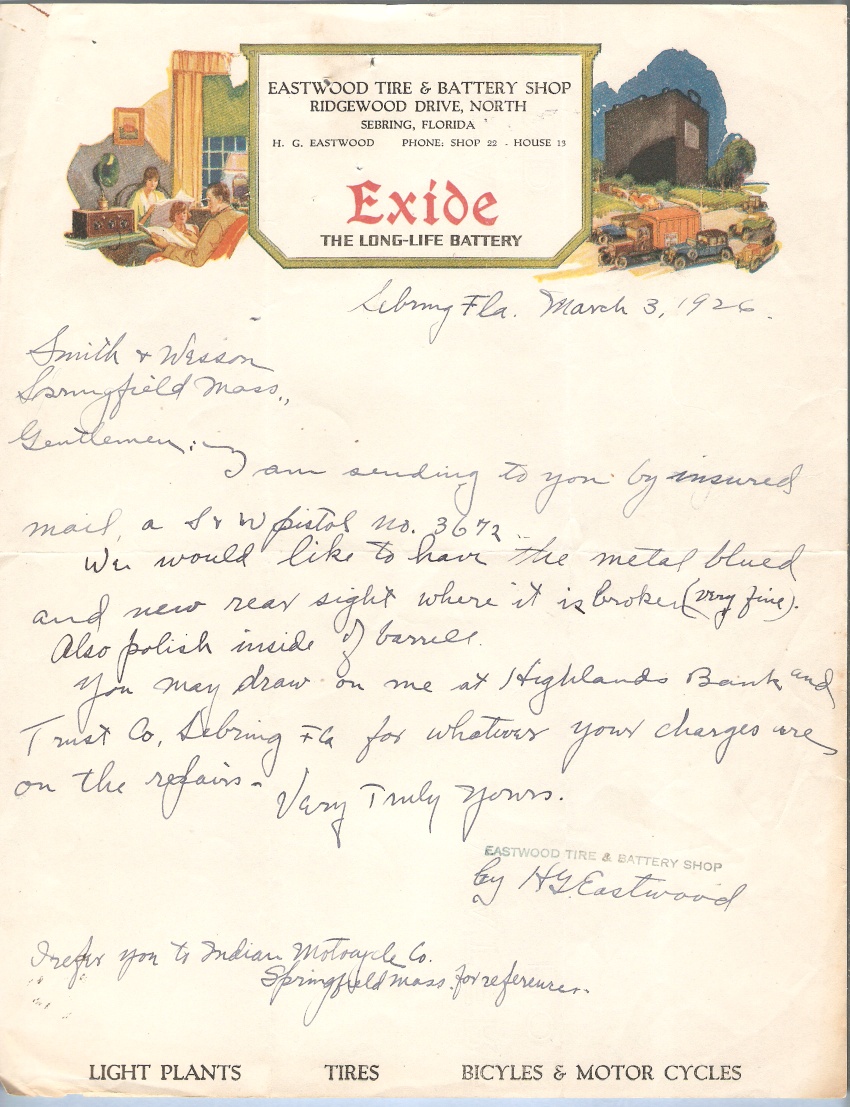 EASTWOOD TIRE & BATTERY SHOP
RIDGEWOOD DRIVE, NORTH
SEBRING, FLORIDA
H. G. EASTWOOD PHONE: SHOP 22 - HOUSE 13
Exide
THE LONG-LIFE BATTERY
Sebring Fla. March 3, 1926.
Smith & Wesson
Springfield Mass.,
Gentlemen:
I am sending to you by insured
mail, a S & W pistol no. 3672.
We would like to have the metal blued
and new rear sight where it is broken (very fine).
Also polish inside of barrell.
You may draw on me at Highlands Bank and
Trust Co, Sebring Fla for whatever your charges are
on the repairs-
Very Truly Yours.
EASTWOOD TIRE & BATTERY SHOP
by H G. Eastwood
I refer you to Indian Motocycle Co.
Springfield Mass. for references.
LIGHT PLANTS TIRES BICYLES & MOTOR CYCLES